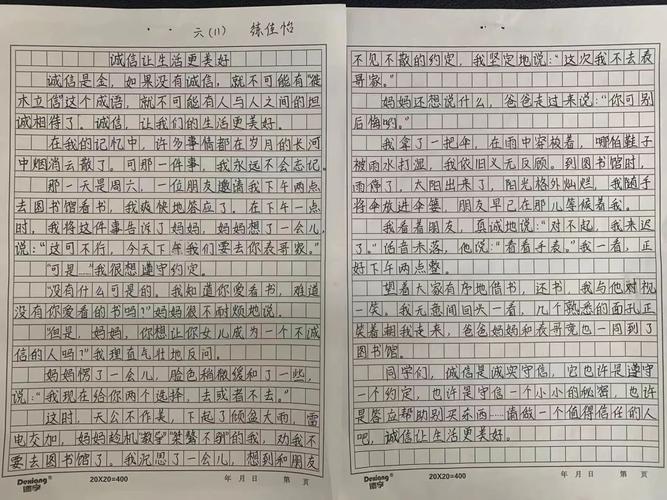 六(1) 练佳怡
诚信让生活更美好
诚信是金,如果没有诚信,就不可能有“徙
木立信”这个成语,就不可能有人与人之间的坦
诚相待了。诚信,让我们的生活更美好。
在我的记忆中,许多事情都在岁月的长河
中烟消云散了。可那一件事,我永远不会忘记。
那一天是周六,一位朋友邀请我下午两点
去图书馆看书,我爽快地答应了。在下午一点
时,我将这件事告诉了妈妈,妈妈想了一会儿,
说:“这可不行,今天下午我们要去你表哥家。”
“可是……”我很想遵守约定。
“没有什么可是的。我知道你爱看书,难道
没有你爱看的书吗?”妈妈很不耐烦地说。
“但是,妈妈,你想让你女儿成为一个不诚
信的人吗?”我理直气壮地反问。
妈妈愣了一会儿,脸色稍微缓和了一些,
说:“我现在给你两个选择,去或者不去。”
这时,天公不作美,下起了倾盆大雨,雷
电交加,妈妈趁机“教学”“桀骜不驯”的我,劝我不
要去图书馆了。我沉思了一会儿,想到和朋友
Dexiang 德享 20X20=400 年 月 日 第 页
不见不散的约定,我坚定地说:“这次我不去表
哥家。”
妈妈还想说什么,爸爸走过来说:“你可别
后悔哟。”
我拿了一把伞,在雨中穿梭着,哪怕鞋子
被雨水打湿,我依旧义无反顾。到图书馆时,
雨停了,太阳出来了,阳光格外灿烂,我随手
将伞放进伞篓,朋友早已在那儿等候着我。
我看着朋友,真诚地说:“对不起,我来迟
了。”话音未落,他说:“看看手表。”我一看,正
好下午两点整。
望着大家有序地借书,还书,我与他对视
一笑。我无意间回头一看,几个熟悉的面孔正
笑着朝我走来,爸爸妈妈和表哥竟也一同到了
图书馆。
同学们,诚信是诚实守信,它也许是遵守
一个约定,也许是守信一个小小的秘密,也许
是答应帮助别买东西……请做一个值得信任的人
吧,诚信让生活更美好。
Dexiang 德享 20X20=400 年 月 日 第 页